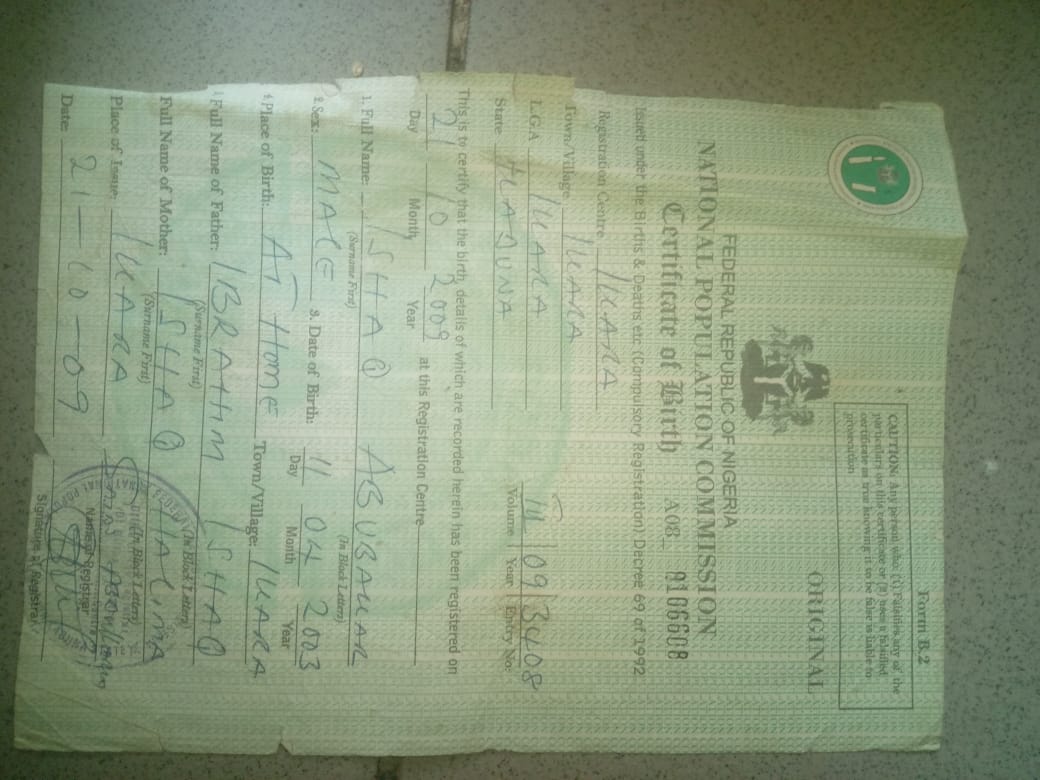 Form B.2
CAUTION: Any person who: (1) Falsifies any of the
particulars on this certificate or (2) uses a falsified
certificate as true knowing it to be false is liable to
prosecution
ORIGINAL
FEDERAL REPUBLIC OF NIGERIA
NATIONAL POPULATION COMMISSION
Certificate of Birth A08 016608
Issued under the Births & Deaths etc (Compulsory Registration) Decree 69 of 1992
Registration Centre IKARA
Town/Village IKARA
L.G.A IKARA III 09 3408
State KADUNA Volume Year Entry No:
This is to certify that the birth, details of which are recorded herein has been registered on
21 10 2009 at this Registration Centre
Day Month Year
1. Full Name: ISHAQ ABUBAKAR
(Surname First) (In Block Letters)
2. Sex: MALE 3. Date of Birth: 11 04 2003
Day Month Year
4. Place of Birth: AT HOME Town/Village: IKARA
Full Name of Father: IBRAHIM ISHAQ
(Surname First) (In Block Letters)
Full Name of Mother: ISHAQ HALIMA
(Surname First) (In Block Letters)
Place of Issue: IKARA
Name of Registrar
Date: 21-10-09
Signature of Registrar